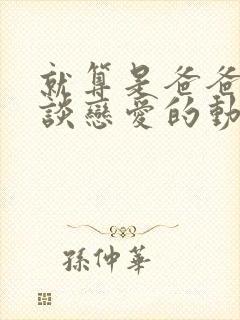 就算是爸爸
談戀愛的動
孫仲華